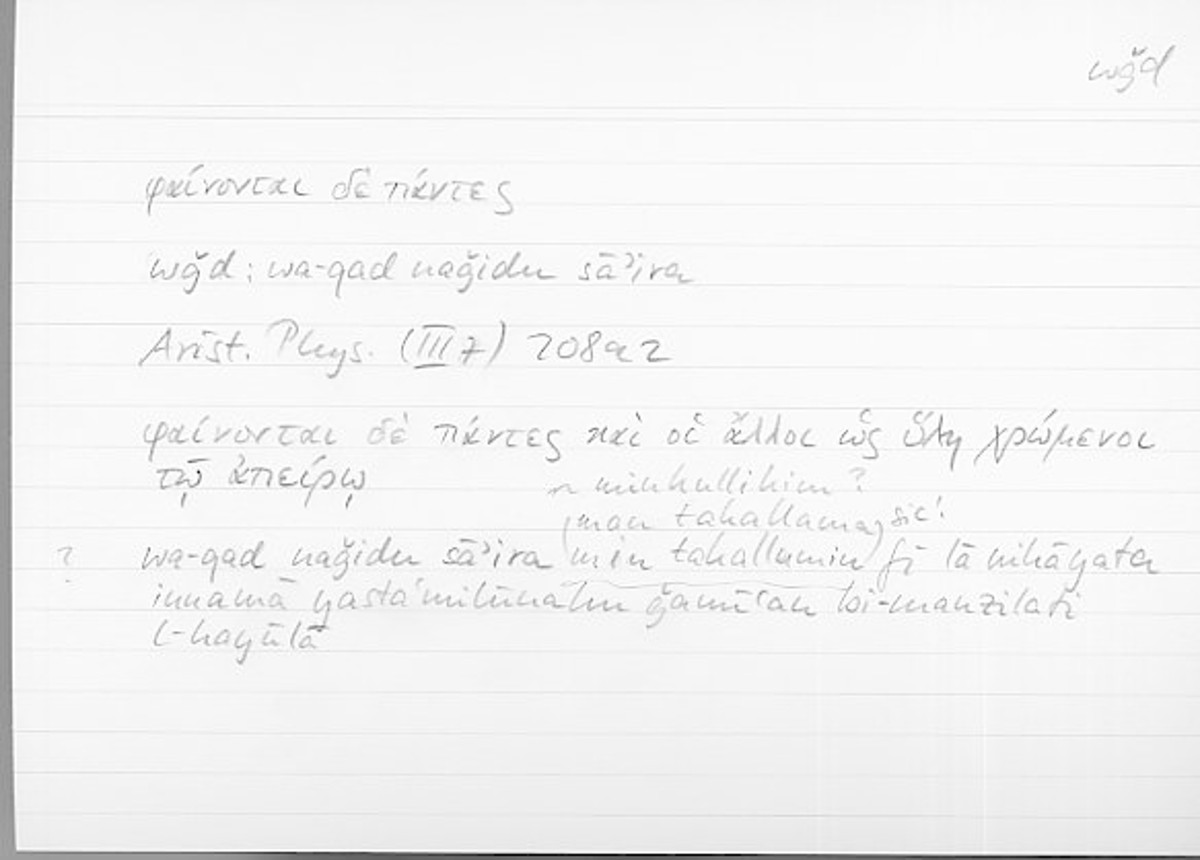 wǧd
φαίνονται δὲ πάντες
wǧd : wa-qad naǧidu sāʾira
Arist. Phys. (III 7) 208a2
φαίνονται δὲ πάντες καὶ οἱ ἄλλοι ὡς ὕλῃ χρώμενοι
τῷ ἀπείρῳ
minkullihim ?
(man takallama) sic!
? wa-qad naǧidu sāʾira min takallumin fī lā nihāyata
innamā yastaʿmilūnahu ǧamīʿan bi-manzilati
l-hayūlā